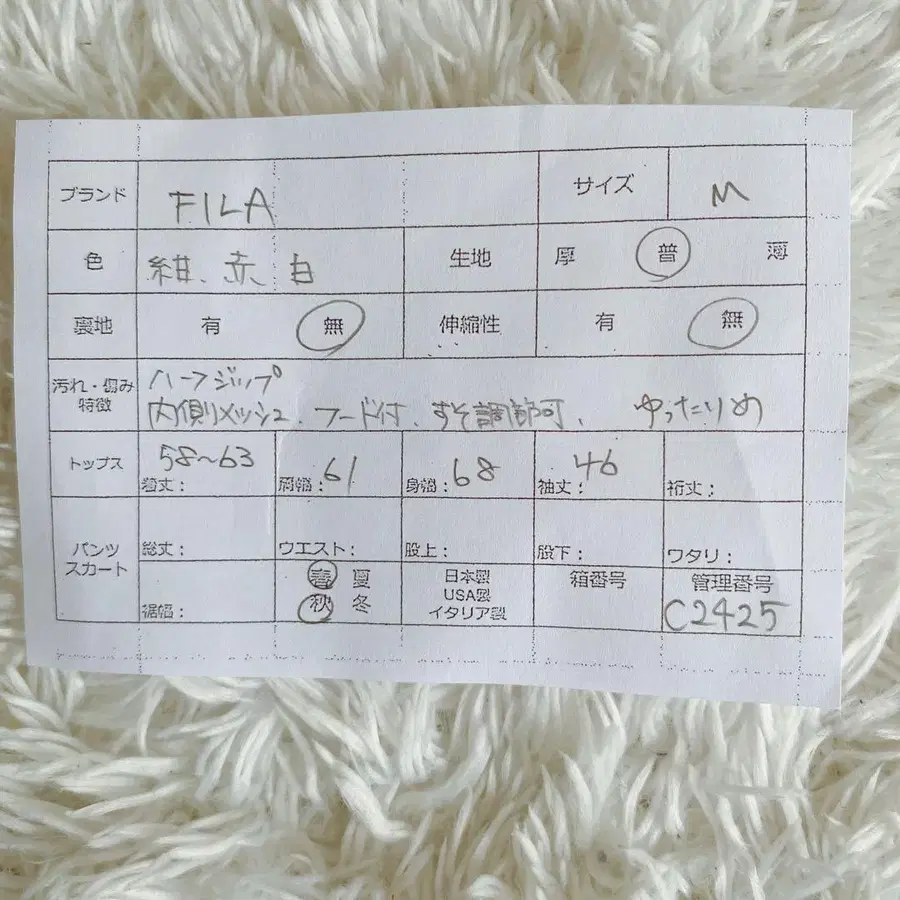 ブランド FILA サイズ M
色 紺、赤 白 生地 厚 普 薄
裏地 有 無 伸縮性 有 無
汚れ・傷み
特徴
ハーフジップ
内側メッシュ、フード付、すそ調節可、 ゆったりめ
トップス 着丈: 58~63 肩幅: 61 身幅: 68 袖丈: 46 裄丈:
パンツ
スカート
総丈: ウエスト: 股上: 股下: ワタリ:
裾幅:
春 夏
秋 冬
日本製
USA製
イタリア製
箱番号
管理番号
C2425